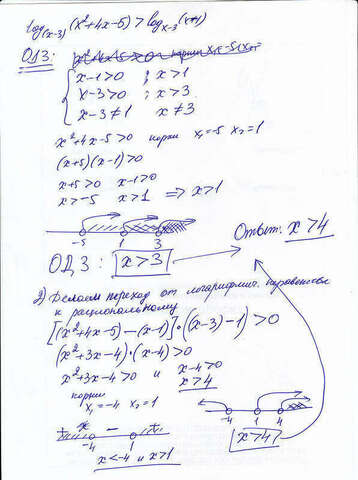 log(x-3) (x²+4x-5) > log x-3 (x-1)
ОДЗ:
{ x-1>0 ; x>1
x-3>0 ; x>3
x-3≠1 x≠3
x²+4x-5>0 корни x₁=-5 x₂=1
(x+5)(x-1)>0
x+5>0 x-1>0
x>-5 x>1 ⇒ x>1
-5 1 3
Ответ: x>4
ОДЗ: x>3
2) Делаем переход от логарифмич. неравенства
к рациональному
[(x²+4x-5)-(x-1)]·((x-3)-1)>0
(x²+3x-4)·(x-4)>0
x²+3x-4>0 и x-4>0
x>4
корни
x₁=-4 x₂=1
-4 1 4
+ - +
-4 1
x>4
x<-4 и x>1